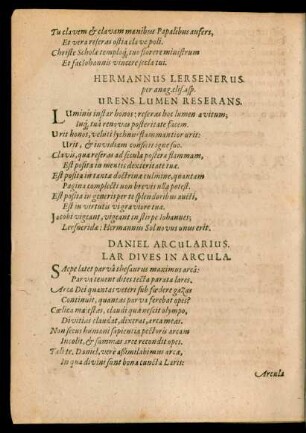 Tu clavem & clavam manibus Papalibus aufers,
Et vera reseras ostia clave poli.
Christe Schola temploq́; tuo florere ministrum
Et fac Iohannis vincere secla tui.
HERMANNUS LERSENERUS.
per anag. elis. asp.
URENS LUMEN RESERANS.
LUminis instar honos: reseras hoc lumen avitum;
tuq́; tua renovas posteritate facem.
Urit honos, veluti lychnus flammantior urit:
Urit, & invidiam conficit igne suo.
Clavis, qua reseras ad secula postera flammam,
Est posita in mentis dexteritate tuæ.
Est posita in tanta doctrina culmine, quantum
Pagina complecti non brevis ulla potest.
Est posita in generis per te splendoribus aucti,
Est in virtutis vigre vitore tuæ.
Jacobi vigeant, vigeant in stirpe Iohannes;
Hermannus unus erit.
DANIEL ARCULARIUS.
LAR DIVES IN ARCULA.
SÆpe latet parvâ thesaurus maximus arcâ:
Parva tenent dites tecta parata lares.
Arca Dei quantas vetere sub fœdere gazas
Continuit, quantas parva ferebat opes?
Cælica majestas, claudi quæ nescit olympo,
Divitias claudat, dextras, arca meas.
Non secus humani sapientia pectoris arcam
Incolit, & summas arte recondit opes.
Tali te, Daniel, verè assimilabimus arcæ,
In qua divini sunt bona cuncta Laris:
Arcula